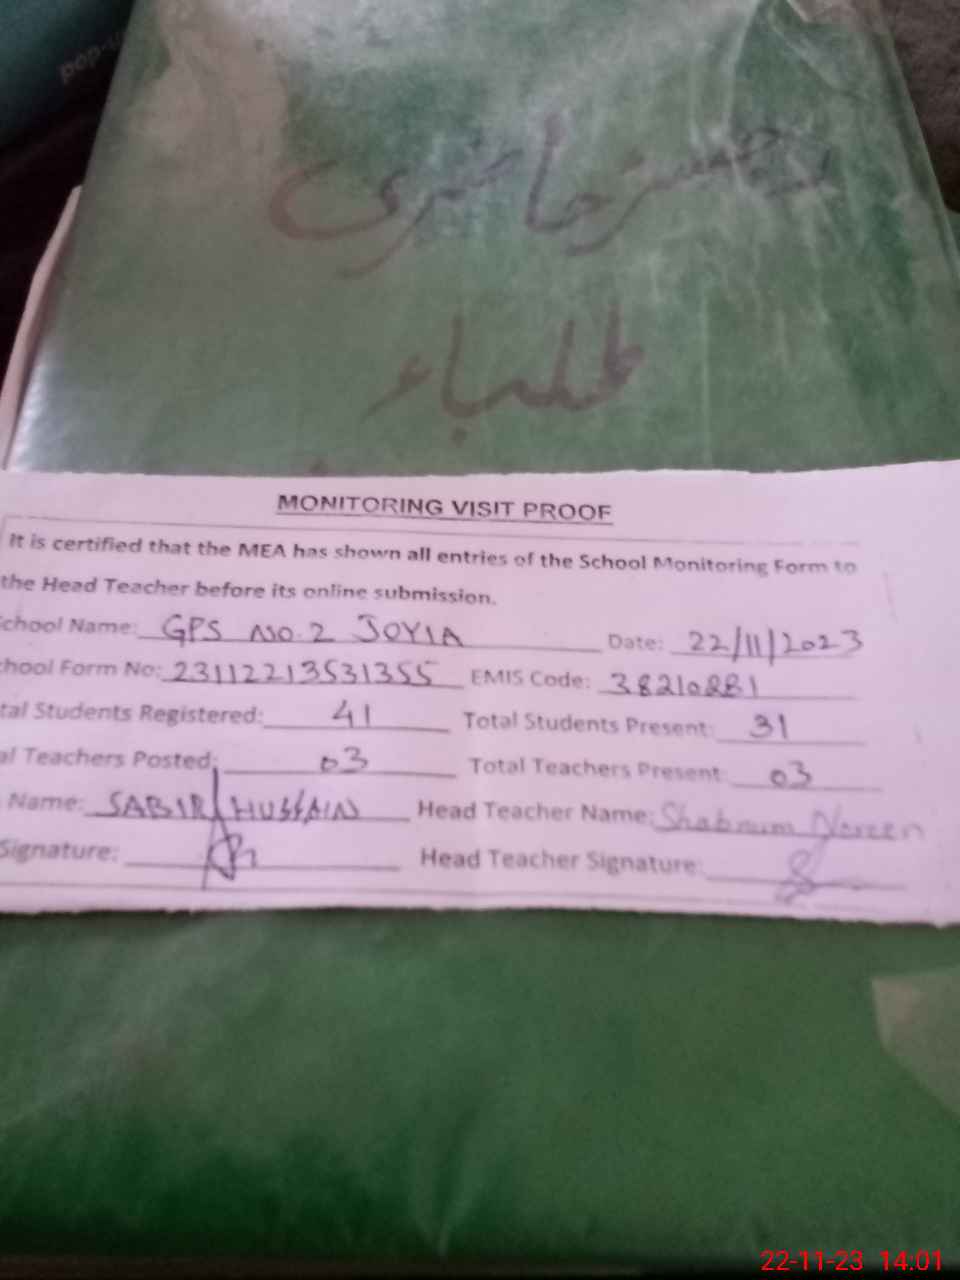 pop-u
رجسٹر حاضری
طلباء
MONITORING VISIT PROOF
It is certified that the MEA has shown all entries of the School Monitoring Form to
the Head Teacher before its online submission.
chool Name: GPS NO.2 JOYIA Date: 22/11/2023
chool Form No: 23112213531355 EMIS Code: 38210281
tal Students Registered: 41 Total Students Present: 31
al Teachers Posted: 03 Total Teachers Present: 03
Name: SABIR HUSSAIN Head Teacher Name: Shabnum Noreen
Signature: Head Teacher Signature:
22-11-23 14:01